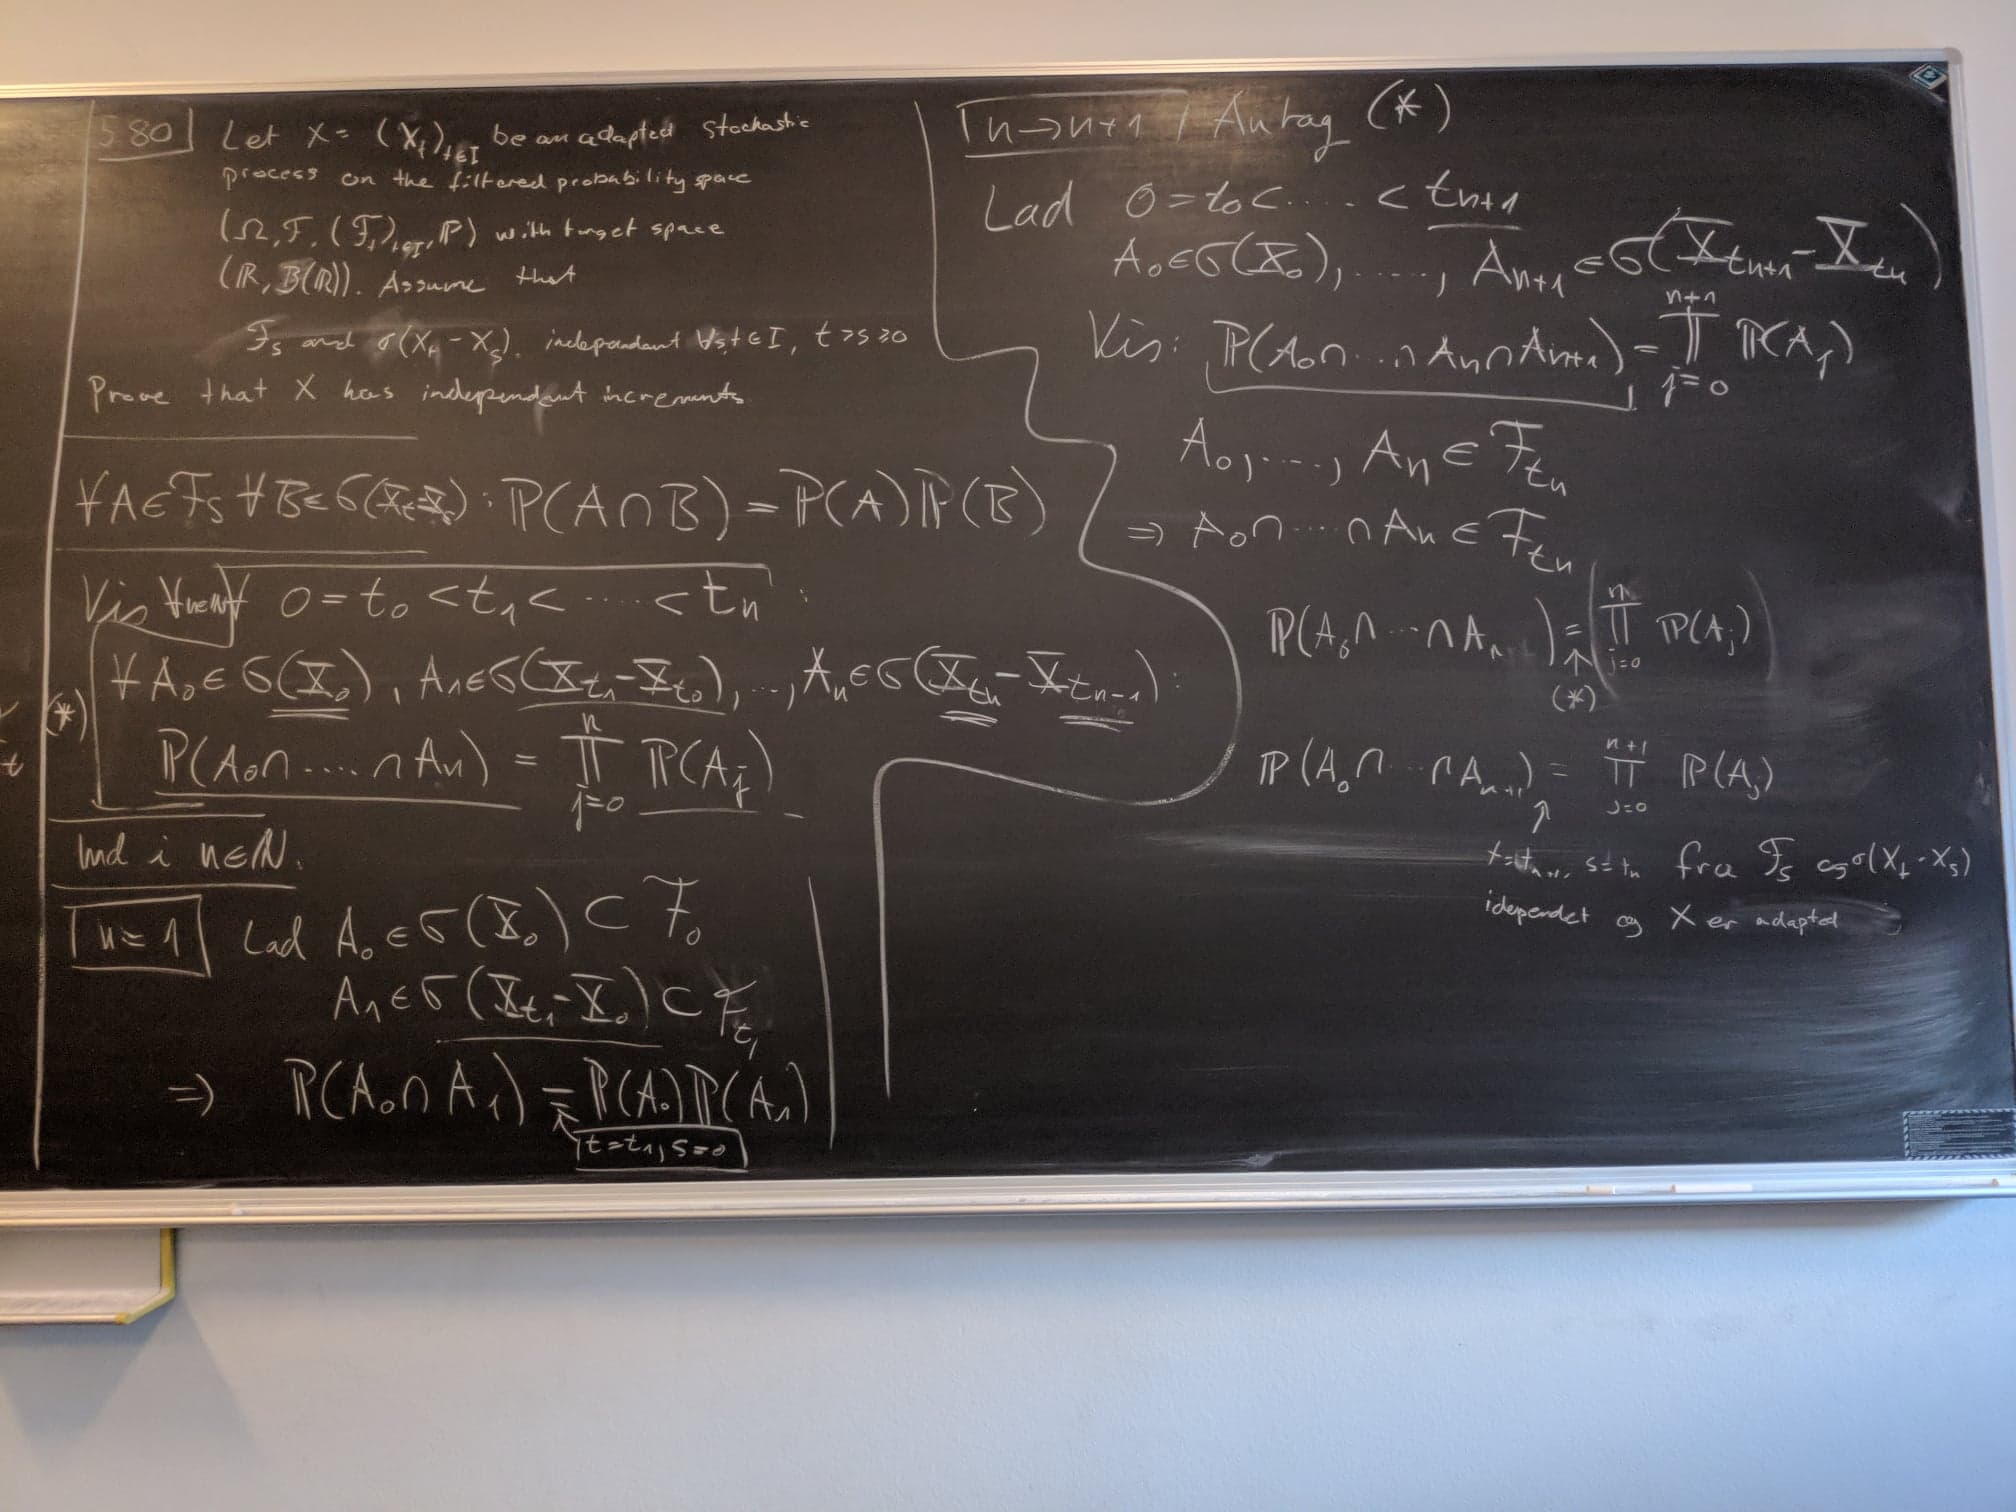 5 80 Let X = (X_t)_{t∈I} be an adapted stochastic
process on the filtered probability space
(Ω, F, (F_t)_{t∈I}, ℙ) with target space
(ℝ, B(ℝ)). Assume that
F_s and σ(X_t - X_s). independant ∀s,t∈I, t>s≥0
Prove that X has independent increments
∀A∈F_s ∀B∈σ(X_t-X_s): ℙ(A∩B) = ℙ(A)ℙ(B)
Vis ∀n∈ℕ ∀ 0 = t_0 < t_1 < ····· < t_n :
(*) ∀A_0∈σ(X_0), A_1∈σ(X_{t_1}-X_{t_0}), ..., A_n∈σ(X_{t_n}-X_{t_{n-1}}):
ℙ(A_0∩....∩A_n) = ∏_{j=0}^{n} ℙ(A_j)
Ind i n∈ℕ.
n=1 Lad A_0∈σ(X_0) ⊂ F_0
A_1∈σ(X_{t_1}-X_0) ⊂ F_{t_1}
⇒ ℙ(A_0∩A_1) = ℙ(A_0)ℙ(A_1)
t=t_1, s=0
n→n+1 Antag (*)
Lad 0=t_0<.....<t_{n+1}
A_0∈σ(X_0), ......, A_{n+1}∈σ(X_{t_{n+1}}-X_{t_n})
Vis: ℙ(A_0∩..∩A_n∩A_{n+1}) = ∏_{j=0}^{n+1} ℙ(A_j)
A_0,....., A_n ∈ F_{t_n}
⇒ A_0∩····∩A_n ∈ F_{t_n}
ℙ(A_0∩···∩A_n) = (∏_{j=0}^{n} ℙ(A_j))
(*)
ℙ(A_0∩···∩A_{n+1}) = ∏_{j=0}^{n+1} ℙ(A_j)
t=t_{n+1}, s=t_n fra F_s og σ(X_t-X_s)
idependet og X er adapted